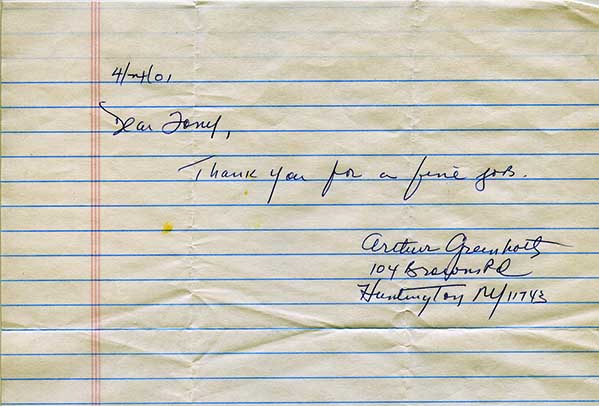 4/24/01
Dear Tony,
Thank you for a fine job.
Arthur Greenholtz
104 Browns Rd
Huntington NY 11743